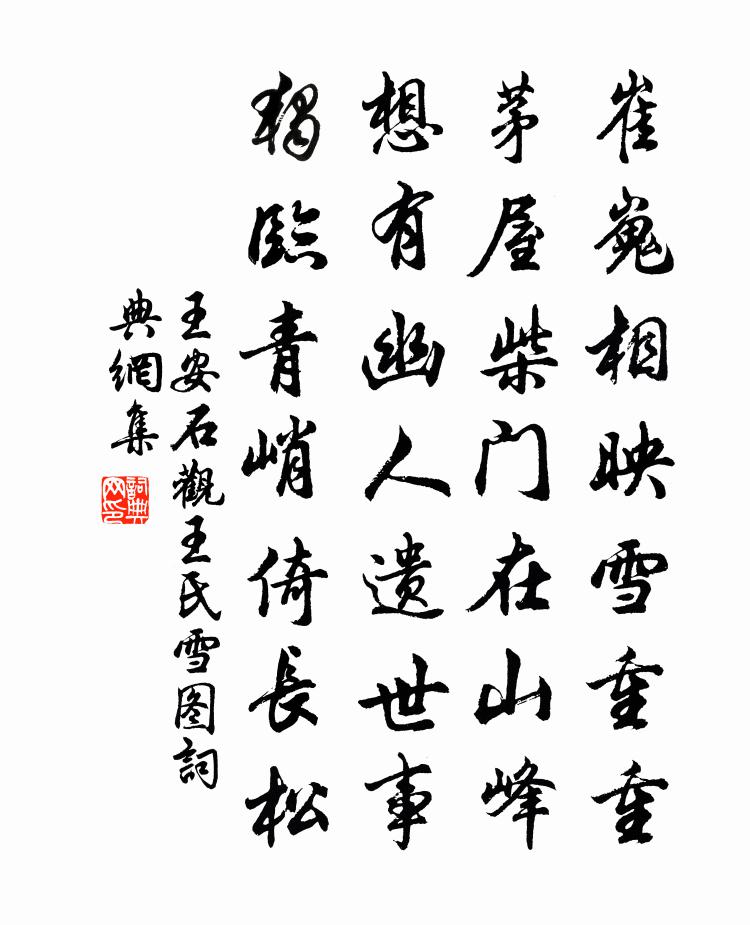 崔嵬相映雪重重
茅屋柴门在山峰
想有幽人遗世事
獨臨青峭倚長松
王安石觀王氏雪图詞
典網集
詞典
网印